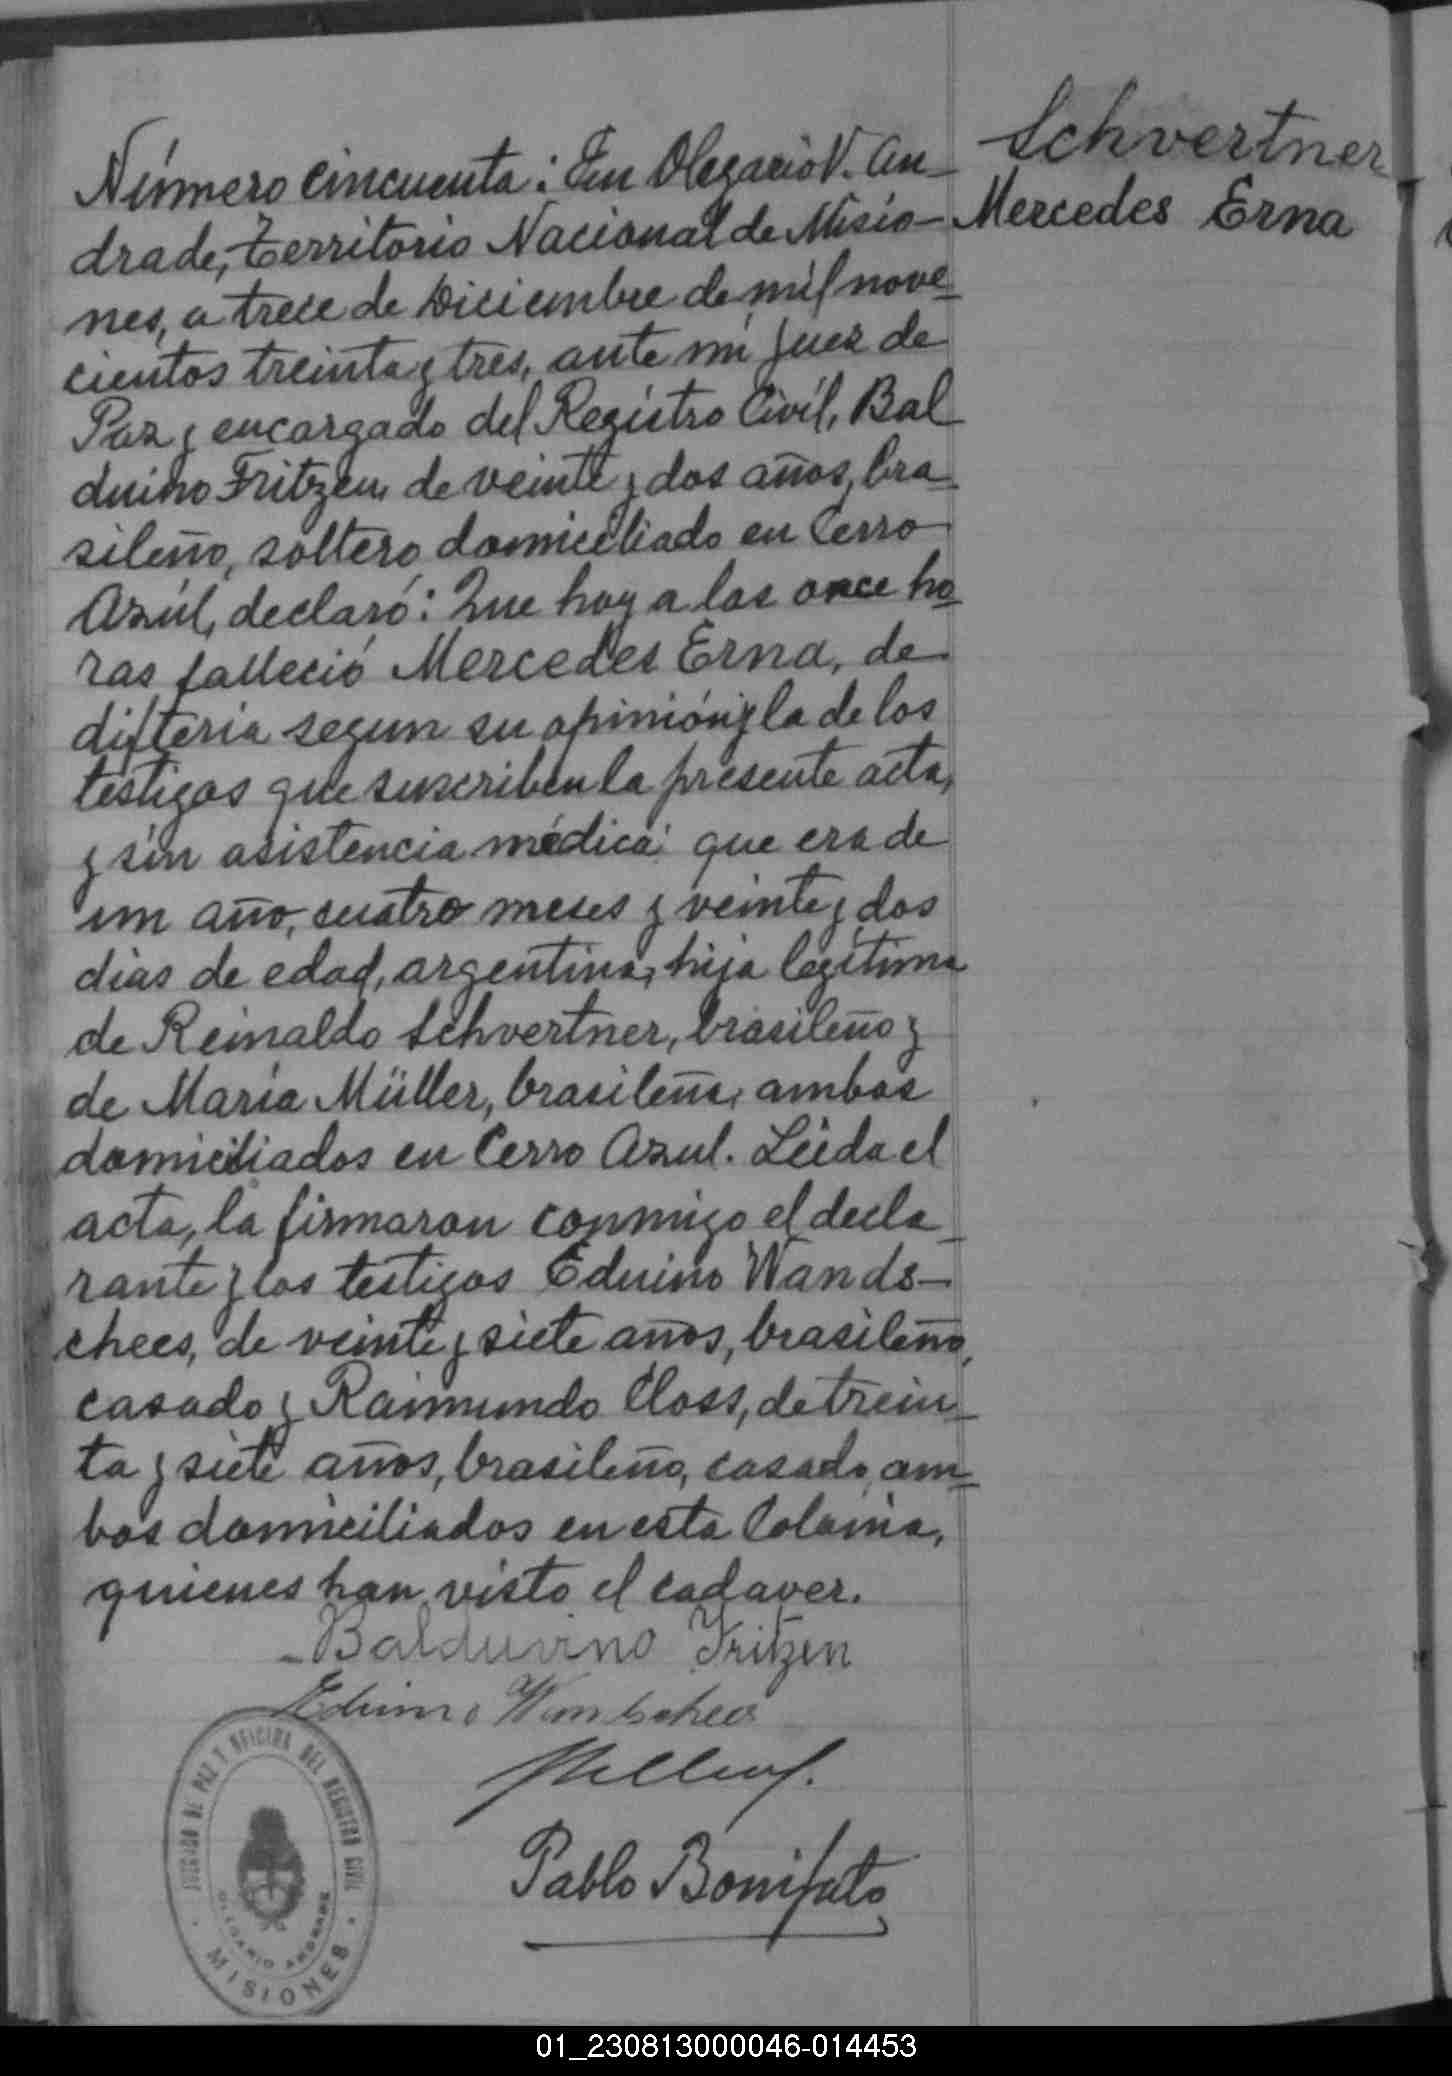 Schvertner
Mercedes Erna
Número cincuenta: En Olegario V. An-
drade, Territorio Nacional de Misio-
nes, a trece de Diciembre de mil nove-
cientos treinta y tres, ante mi Juez de
Paz y encargado del Registro Civil, Bal
duino Fritzen, de veinte y dos años, bra-
sileño, soltero domiciliado en Cerro
Azúl, declaró: Que hoy a las once ho-
ras falleció Mercedes Erna, de
difteria segun su opinión y la de los
testigos que suscriben la presente acta,
y sin asistencia médica: que era de
un año, cuatro meses y veinte y dos
dias de edad, argentina, hija legítima
de Reinaldo Schvertner, brasileño y
de María Müller, brasileña, ambos
domiciliados en Cerro Azul. Leida el
acta, la firmaron conmigo el decla-
rante y los testigos Eduino Wands-
chees, de veinte y siete años, brasileño,
casado y Raimundo Closs, de trein-
ta y siete años, brasileño, casado, am-
bos domiciliados en esta Colonia,
quienes han visto el cadaver.
Balduvino Fritzen
Eduino
Pablo Bonifato
JUZGADO DE PAZ Y OFICINA DEL REGISTRO CIVIL
OLEGARIO ANDRADE
MISIONES
01_230813000046-014453